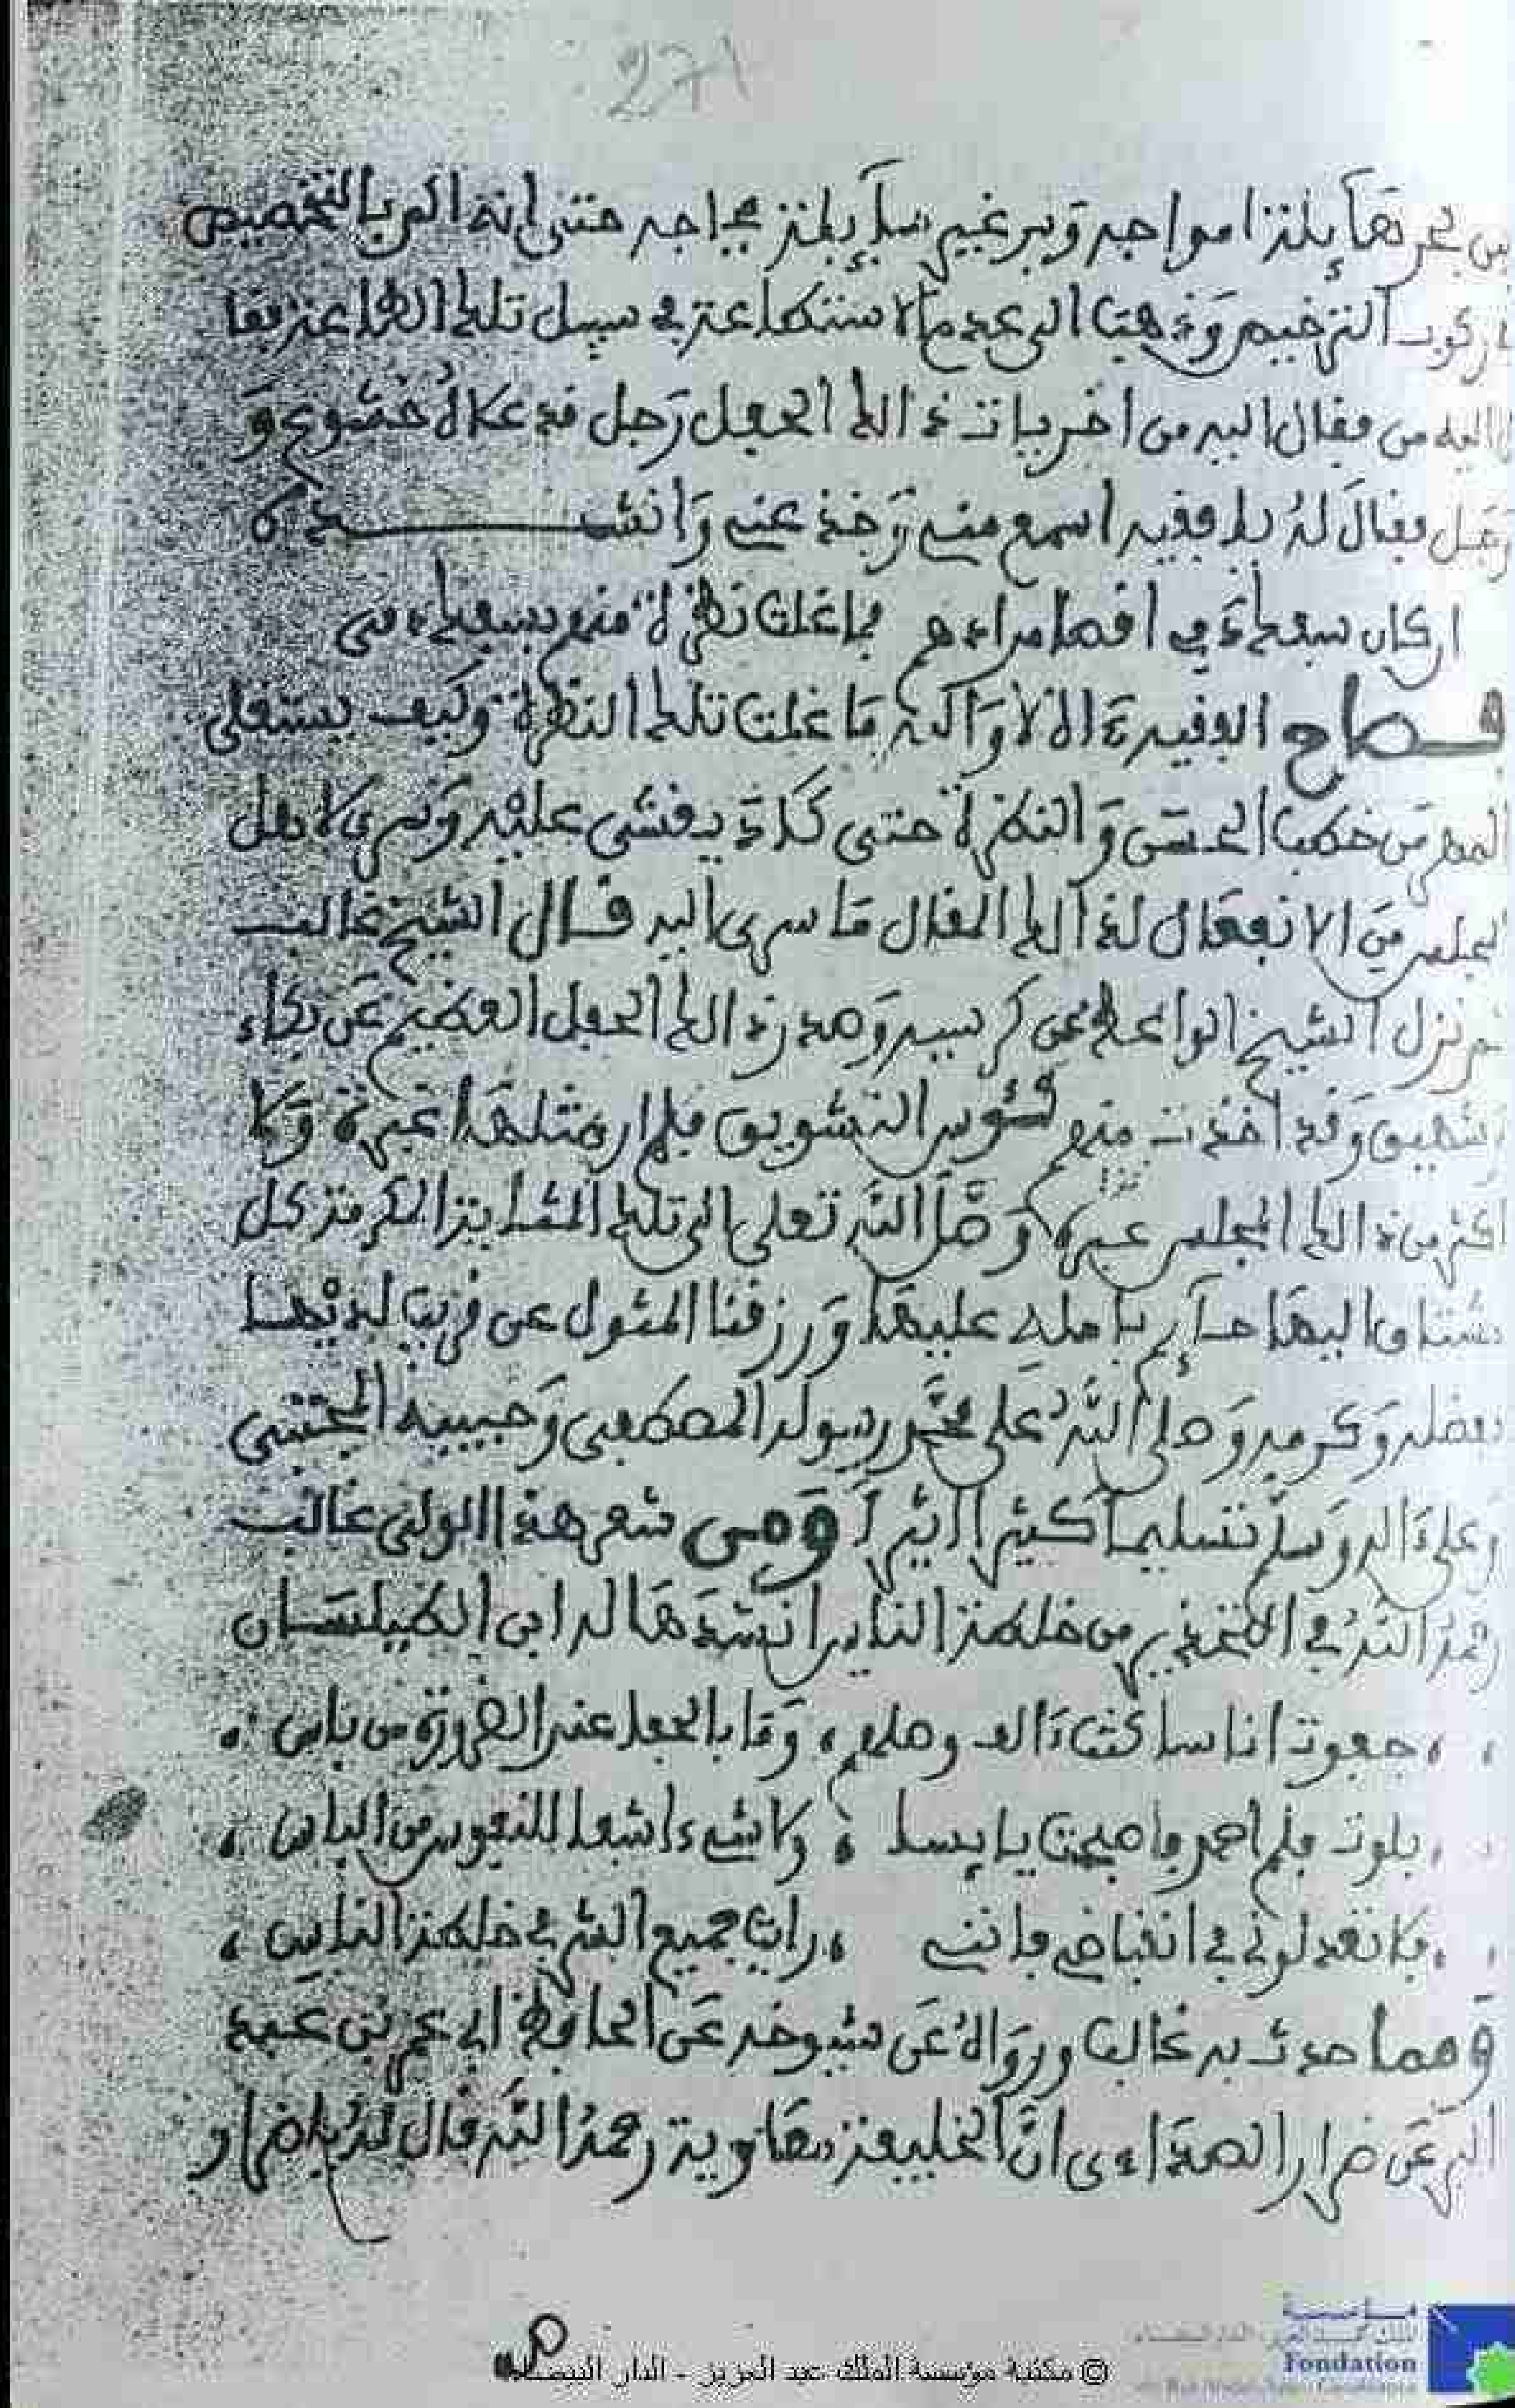 271
بإزاء مواجه وبر غير سا بإزاء مجاجه حتى انه امر بالتخصيص
التزخيم وذهبت الى عدم الاستطاعة في سبيل تلك الطراعة بقا
من فقال اليه من اخريات ذالك الحفل رجل قد علاه خشوع و
فقال له يا فقيه اسمع مني وخذ عني وانشـــده
ان كان سفك دمي اقصا مرادهم فما غلت نظرة منهم بسفك دمي
فصاح الفقيه اذ ذاك ما غلت تلك النظرة وكيف يستغلى
من خطب الحسن والنظرة حتى كاد يغشى عليه وسرى لاهل
المجلس من الانفعال لذالك المقال ما سرى اليه قال الشيخ غالب
ثم نزل الشيخ الواعظ عن كرسيه وصدر ذالك الحفل العظيم عن بكاء
وشهيق وقد اخذت منهم كئوس التشويق فلم ار مثلها عبرة ولا
اكثر من ذالك المجلس عبرة وصل الله تعلى الى تلك المثابة المكرمة كل
مشتاق اليها حايم بامله عليها ورزقنا المثول عن قرب لديها
بفضله وكرمه وصلى الله على محمد رسوله المصطفى وحبيبه المجتبى
وعلى ءاله وسلم تسليما كثيرا اثيرا ومن شعر هذا الولي غالب
رحمه الله في التحذير من خلطة الناس انشدها له ابن الطيلسان
جفوت اناسا كنت ءالف وصلهم وما بالجفا عند الضرورة من باس
بلوت فلم احمد واصبحت يايسا ولا شيء اشفا للنفوس من الياس
فلا تعذلوني في انقباضي فانني رايت جميع الشر في خلطة الناس
ومما حدث به غالب ورواه عن شيوخه عن الحافظ ابي عمر بن عبد
البر عن ضرار الصداءي ان الخليفة معاوية رحمه الله قال له يا ضرار
© مكتبة مؤسسة الملك عبد العزيز - الدار البيضاء
مؤسسة
Fondation